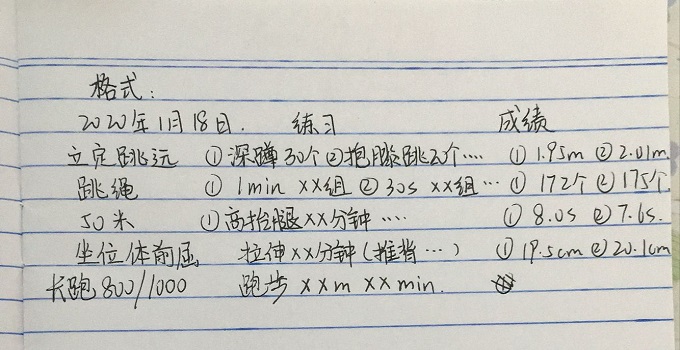 格式:
2020年11月18日. 练习 成绩
立定跳远 ①深蹲30个②抱膝跳20个···· ①1.95m ②2.01m
跳绳 ①1min XX组 ②30s XX组··· ①172个②175个
50米 ①高抬腿XX分钟···· ①8.0s ②7.6s.
坐位体前屈 拉伸XX分钟(推背···) ①19.5cm②20.1cm
长跑800/1000 跑步XXm XXmin.